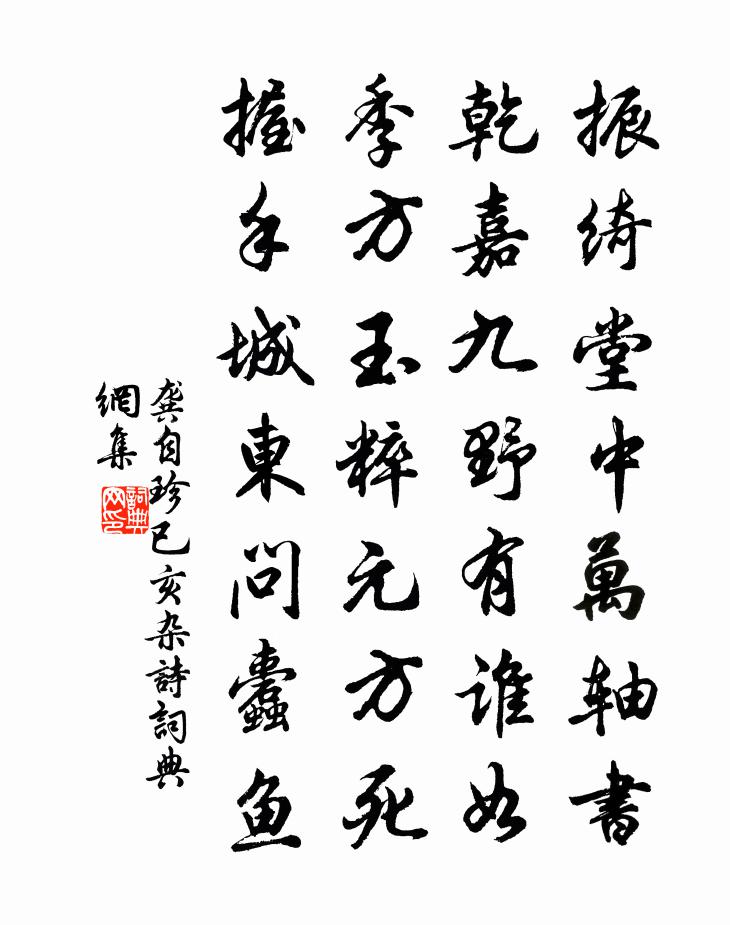 振绮堂中萬轴書
乾嘉九野有谁如
季方玉粹元方死
握手城東問蠹鱼
龚自珍已亥杂詩詞典
網集
詞典網印